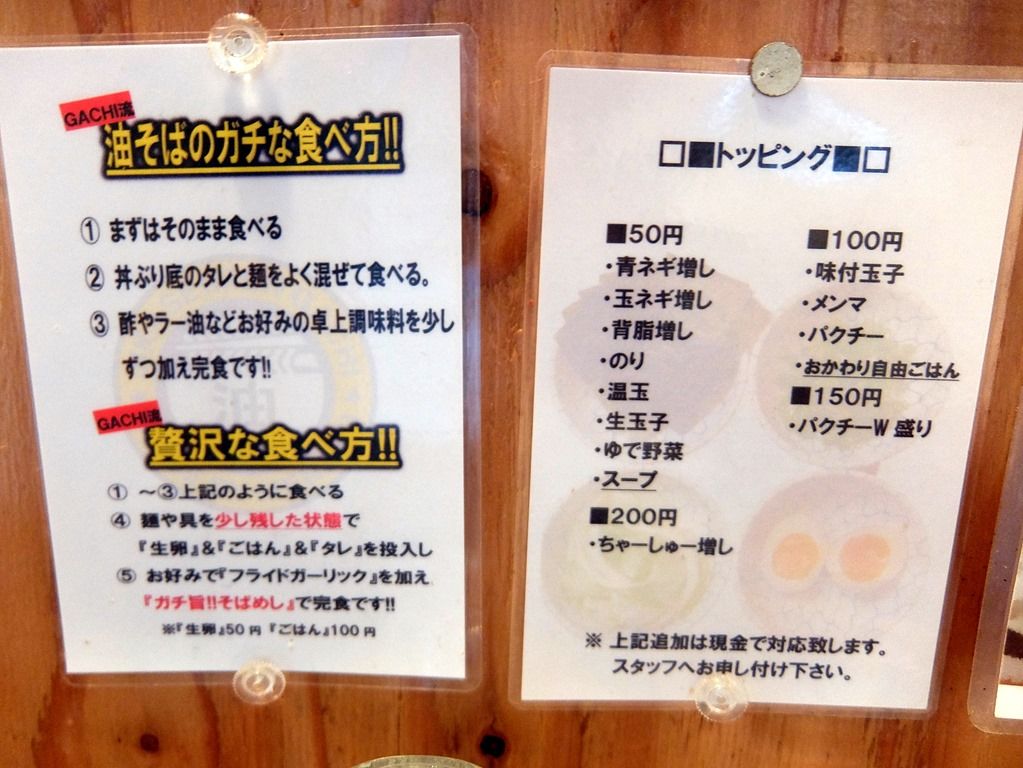 GACHI流
油そばのガチな食べ方!!
① まずはそのまま食べる
② 丼ぶり底のタレと麺をよく混ぜて食べる。
③ 酢やラー油などお好みの卓上調味料を少し
ずつ加え完食です!!
GACHI流
贅沢な食べ方!!
① ～③上記のように食べる
④ 麺や具を少し残した状態で
『生卵』&『ごはん』&『タレ』を投入し
⑤ お好みで『フライドガーリック』を加え
『ガチ旨!!そばめし』で完食です!!
※『生卵』50円『ごはん』100円
□■トッピング■□
■50円
・青ネギ増し
・玉ネギ増し
・背脂増し
・のり
・温玉
・生玉子
・ゆで野菜
・スープ
■200円
・ちゃーしゅー増し
■100円
・味付玉子
・メンマ
・パクチー
・おかわり自由ごはん
■150円
・パクチーW盛り
※ 上記追加は現金で対応致します。
スタッフへお申し付け下さい。